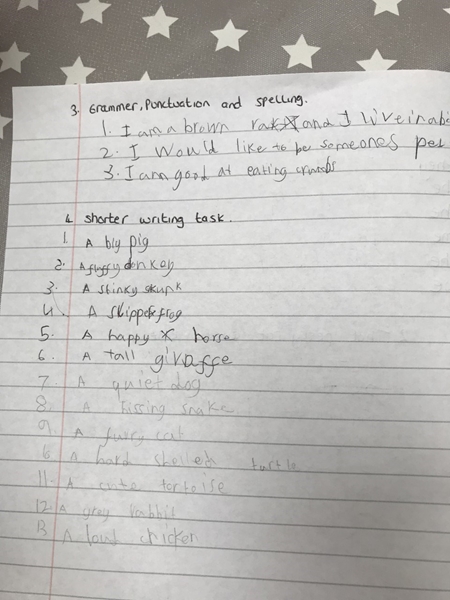 3. Grammer, Punctuation and spelling.
1. I am a brown and I live in a
2. I would like to be someones pet
3. I am good at eating crumbs
4. shorter writing task.
1. A big pig
2. A fluffy donkey
3. A stinky skunk
4. A frog
5. A happy horse
6. A tall giraffe
7. A quiet dog
8. A hissing snake
9. A furry cat
A hard shelled turtle
11. A cute tortoise
12. A grey rabbit
13 A loud chicken